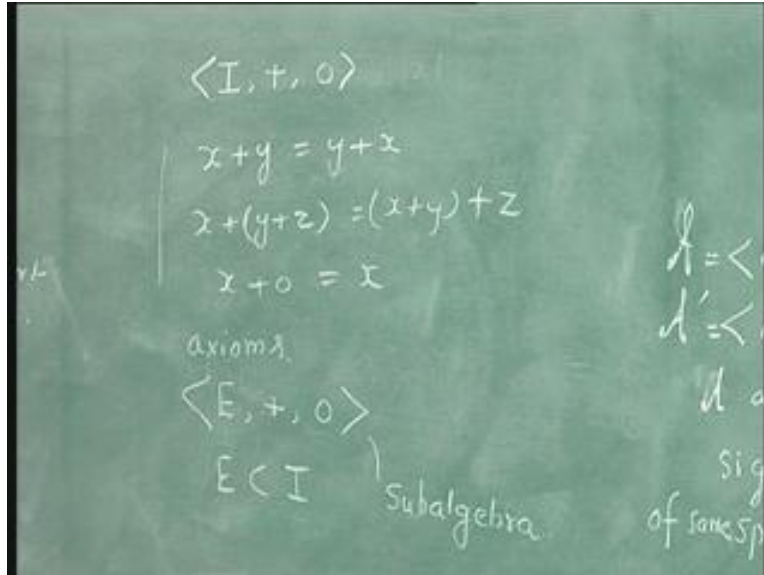 <I, +, 0>
x+y = y+x
x+(y+z) = (x+y)+z
x+0 = x
axioms.
<E, +, 0>
E ⊂ I
Subalgebra
A = <
A' = <
sig
of same sp